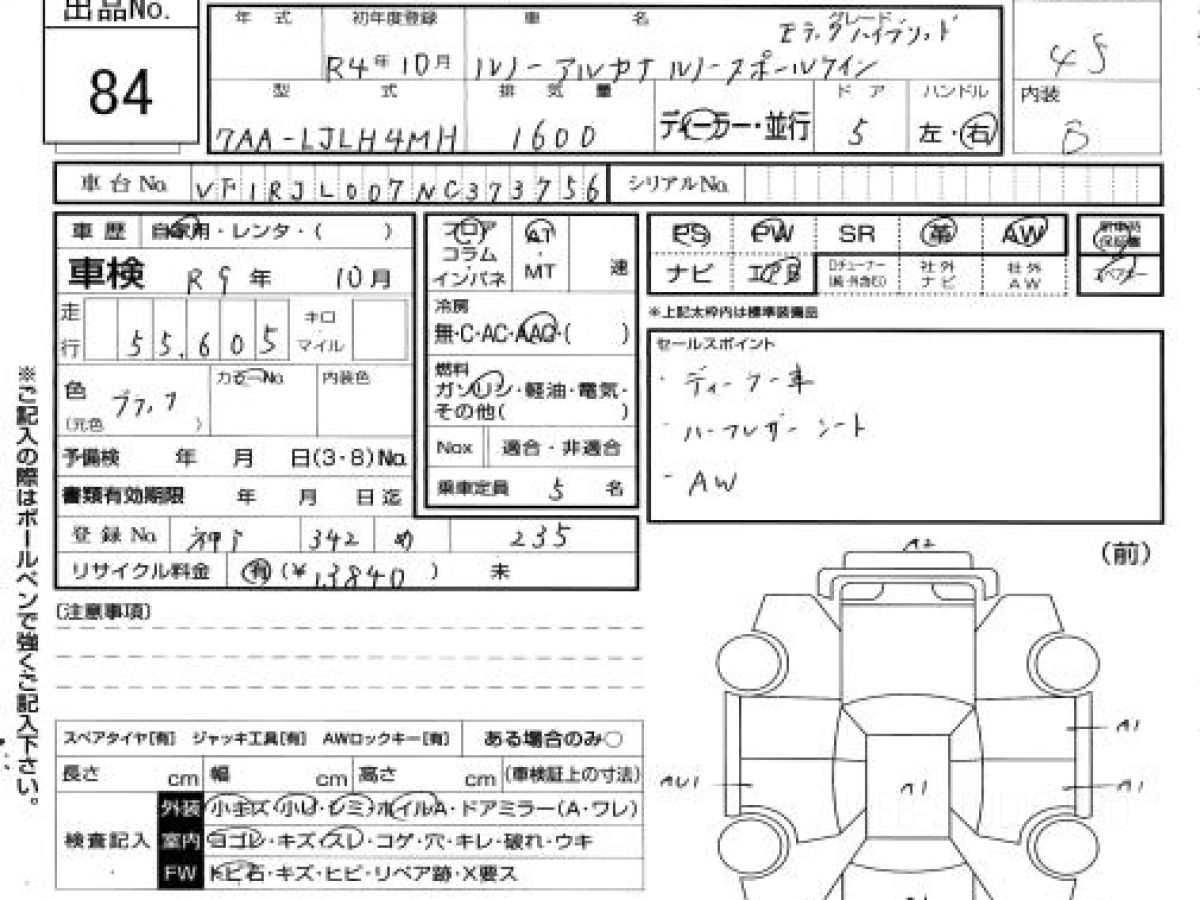 出品No.
84
年式 初年度登録 車名 グレード
E-テックハイブリッド
R4年10月 ルノーアルカナ ルノースポールライン
4S
型式 排気量 ドア ハンドル 内装
7AA-LJLH4MH 1600 ディーラー・並行 5 左・右 B
車台No. VF1RJL007NC373756 シリアルNo.
車歴 自家用・レンタ・( )
車検 R9年 10月
走行 55.605 キロ マイル
色 ブラック (元色 ) カラーNo. 内装色
予備検 年 月 日(3・8)No.
書類有効期限 年 月 日迄
登録No. 神戸 342 め 235
リサイクル料金 有 (¥13840 ) 未
フロア コラム インパネ
AT MT 速
冷房
無・C・AC・AAC・( )
燃料
ガソリン・軽油・電気・
その他( )
Nox 適合・非適合
乗車定員 5 名
PS PW SR 革 AW 新車時保証書
ナビ エアB 社外ナビ 社外AW
※上記太枠内は標準装備品
セールスポイント
・ディーラー車
・ハーフレザーシート
・AW
※ご記入の際はボールペンで強くご記入下さい。
(注意事項)
スペアタイヤ[有] ジャッキ工具[有] AWロックキー[有] ある場合のみ○
長さ cm 幅 cm 高さ cm (車検証上の寸法)
検査記入
外装 小キズ・小U・シミ・ホイルA・ドアミラー(A・ワレ)
室内 ヨゴレ・キズ・スレ・コゲ・穴・キレ・破れ・ウキ
FW トビ石・キズ・ヒビ・リペア跡・X要ス
A2
(前)
A1
AU1 A1 A1